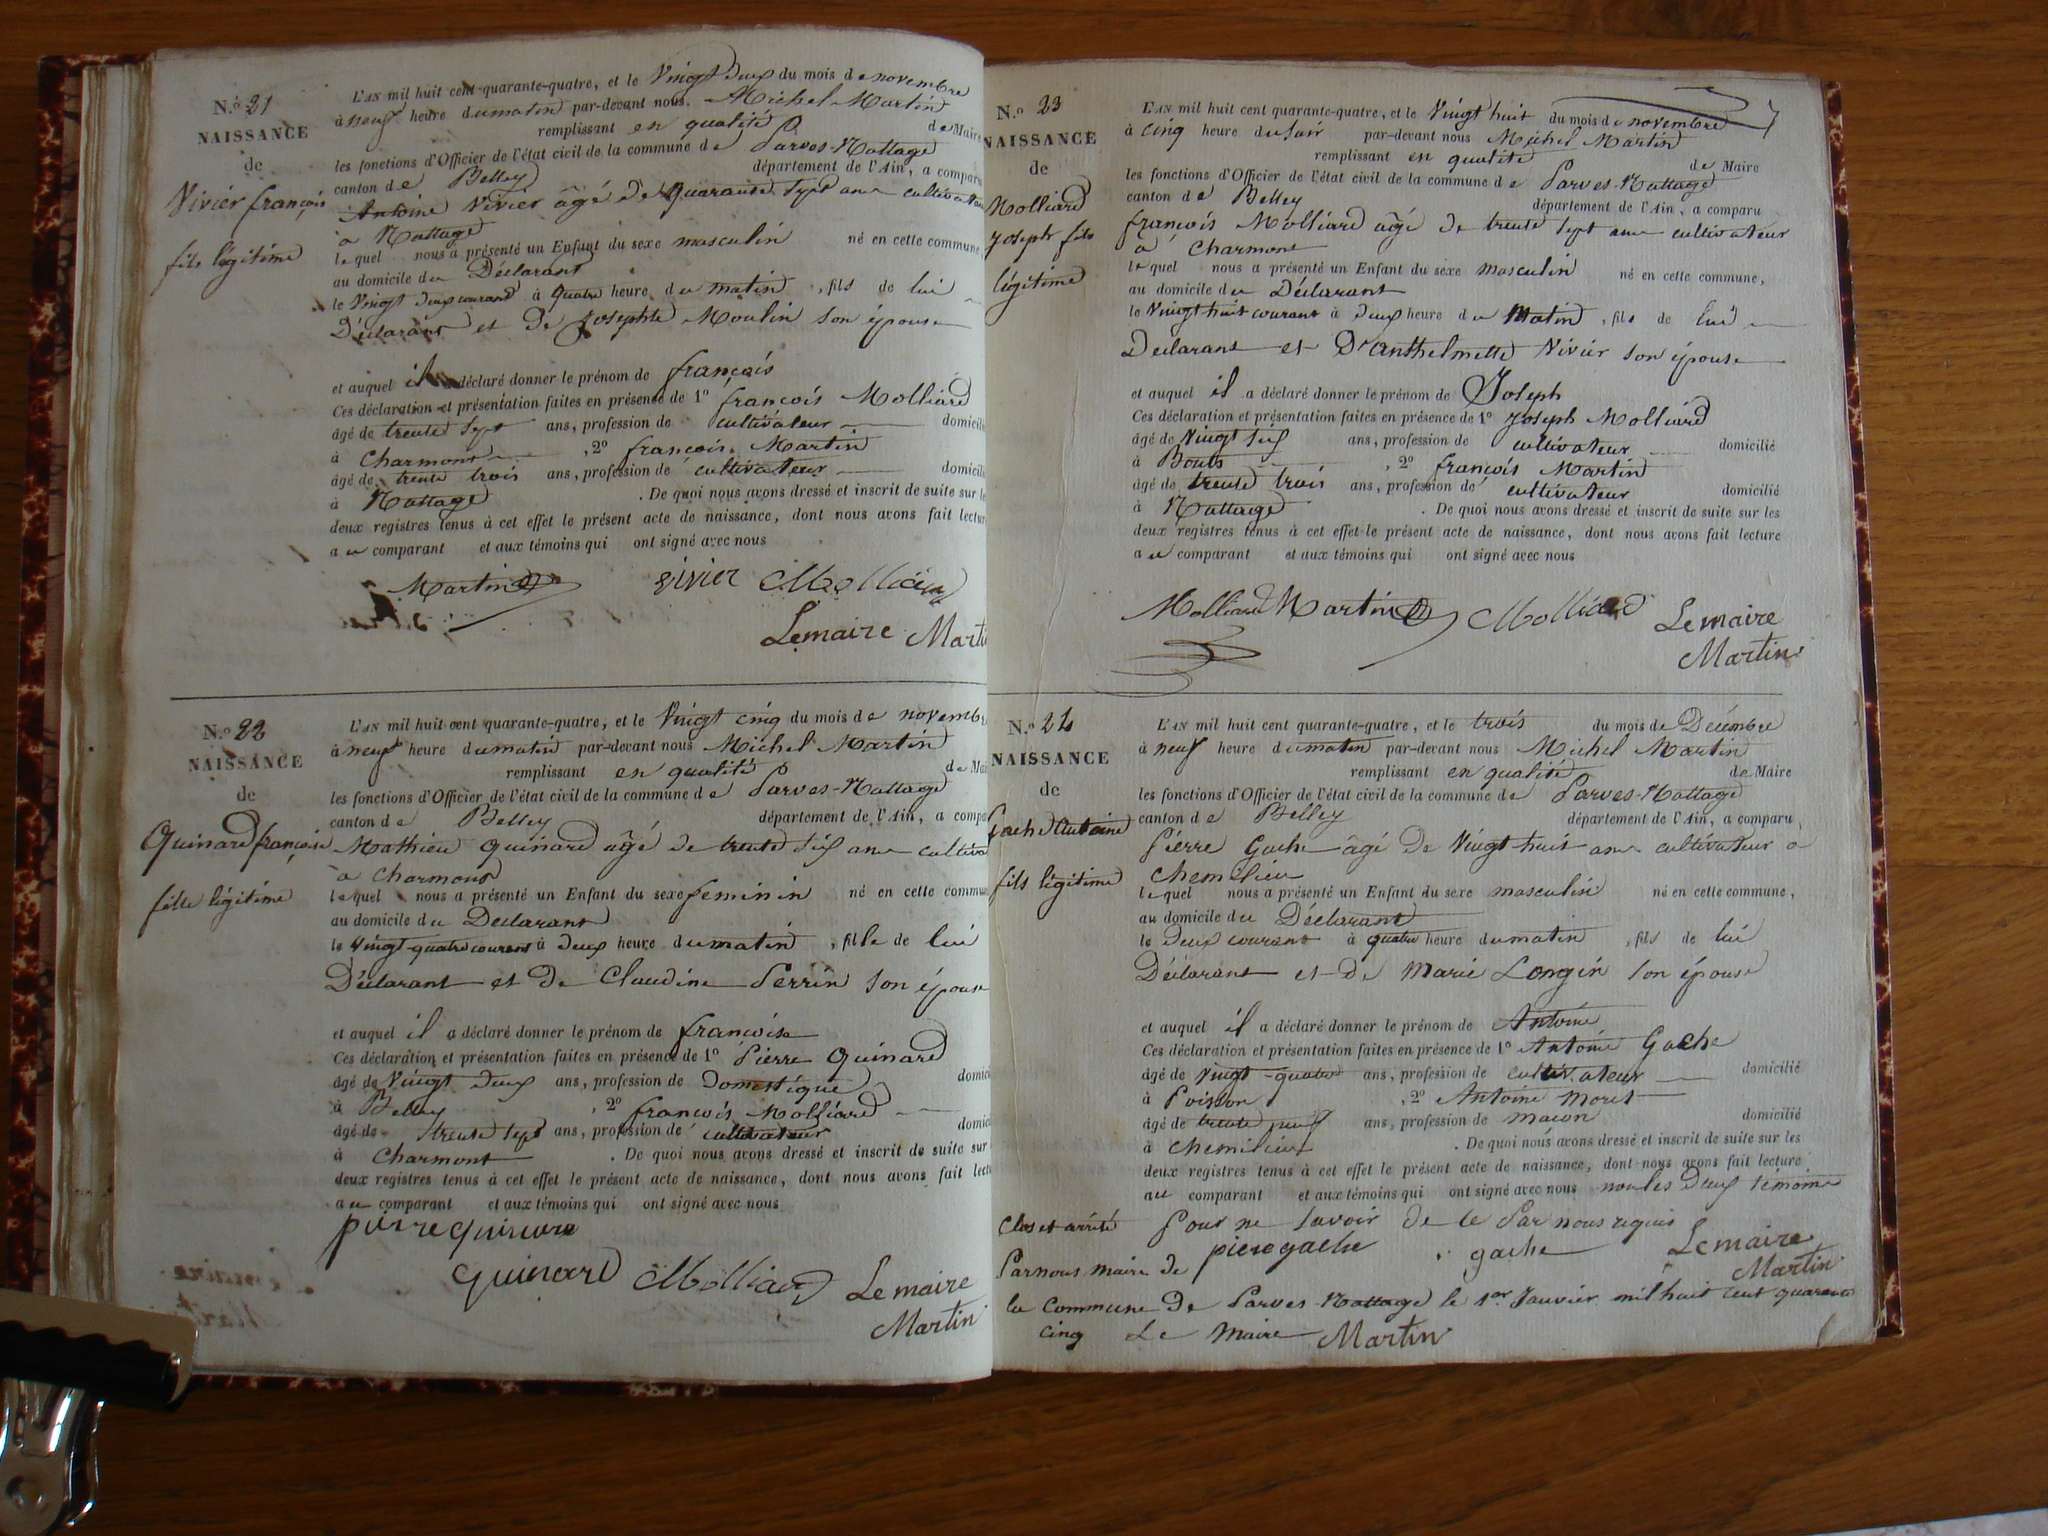 N.º 21
NAISSANCE
de
Vivier françois
fils légitime
L'AN mil huit cent quarante-quatre, et le Vingt deux du mois de novembre
à neuf heure du matin par-devant nous. Michel Martin
remplissant en qualité de Maire
les fonctions d'Officier de l'état civil de la commune de Parves-Nattage
canton de Belley département de l'Ain, a comparu
Antoine Vivier âgé de Quarante sept ans cultivateur
a Nattage
lequel nous a présenté un Enfant du sexe masculin né en cette commune
au domicile du Déclarant
le Vingt deux courant à quatre heure du matin, fils de lui
Déclarant et de Josephte Moulin son épouse
et auquel il a déclaré donner le prénom de françois
Ces déclaration et présentation faites en présence de 1º françois Molliard
âgé de trente sept ans, profession de cultivateur domicilié
à Charmont, 2º françois Martin
âgé de trente trois ans, profession de cultivateur domicilié
à Nattage. De quoi nous avons dressé et inscrit de suite sur les
deux registres tenus à cet effet le présent acte de naissance, dont nous avons fait lecture
au comparant et aux témoins qui ont signé avec nous
Martin vivier Molliard
Lemaire Martin
N.º 22
NAISSANCE
de
Quinard françoise
fille légitime
L'AN mil huit cent quarante-quatre, et le Vingt cinq du mois de novembre
à neuf heure du matin par-devant nous Michel Martin
remplissant en qualité de Maire
les fonctions d'Officier de l'état civil de la commune de Parves-Nattage
canton de Belley département de l'Ain, a comparu
Mathieu Quinard âgé de trente six ans cultiva
a Charmont
lequel nous a présenté un Enfant du sexe feminin né en cette commune
au domicile du Declarant
le Vingt-quatre courant à deux heure du matin, fille de lui
Déclarant et de Claudine Perrin son épouse
et auquel il a déclaré donner le prénom de françoise
Ces déclaration et présentation faites en présence de 1º Pierre Quinard
âgé de Vingt deux ans, profession de Domestique domicilié
à Belley, 2º françois Molliard
âgé de trente sept ans, profession de cultivateur domicilié
à Charmont. De quoi nous avons dressé et inscrit de suite sur
deux registres tenus à cet effet le présent acte de naissance, dont nous avons fait lecture
au comparant et aux témoins qui ont signé avec nous
pierre quinard
quinard Molliard Lemaire
Martin
N.º 23
NAISSANCE
de
Molliard
Joseph fils
légitime
L'AN mil huit cent quarante-quatre, et le Vingt huit du mois de novembre
à cinq heure du soir par-devant nous Michel Martin
remplissant en qualité de Maire
les fonctions d'Officier de l'état civil de la commune de Parves-Nattage
canton de Belley département de l'Ain, a comparu
françois Molliard âgé de trente sept ans cultivateur
a Charmont
lequel nous a présenté un Enfant du sexe masculin né en cette commune,
au domicile du Déclarant
le Vingt huit courant à deux heure du Matin, fils de lui
Declarant et D'anthelmette Vivier son épouse
et auquel il a déclaré donner le prénom de Joseph
Ces déclaration et présentation faites en présence de 1º Joseph Molliard
âgé de Vingt six ans, profession de cultivateur domicilié
à Bouts, 2º françois Martin
âgé de trente trois ans, profession de cultivateur domicilié
à Nattage. De quoi nous avons dressé et inscrit de suite sur les
deux registres tenus à cet effet le présent acte de naissance, dont nous avons fait lecture
au comparant et aux témoins qui ont signé avec nous
Molliard Martin Molliard Lemaire
Martin
N.º 24
NAISSANCE
de
Gache Antoine
fils légitime
L'AN mil huit cent quarante-quatre, et le trois du mois de Decémbre
à neuf heure du matin par-devant nous Michel Martin
remplissant en qualité de Maire
les fonctions d'Officier de l'état civil de la commune de Parves-Nattage
canton de Belley département de l'Ain, a comparu,
Pierre Gache âgé de Vingt huit ans cultivateur a
Chemilieu
lequel nous a présenté un Enfant du sexe masculin né en cette commune,
au domicile du Déclarant
le Deux courant à quatre heure du matin, fils de lui
Déclarant et de Marie Longin son épouse
et auquel il a déclaré donner le prénom de Antoine
Ces déclaration et présentation faites en présence de 1º Antoine Gache
âgé de Vingt-quatre ans, profession de cultivateur domicilié
à Poisson, 2º Antoine Moret
âgé de trente neuf ans, profession de macon domicilié
à Chemilieu. De quoi nous avons dressé et inscrit de suite sur les
deux registres tenus à cet effet le présent acte de naissance, dont nous avons fait lecture
au comparant et aux témoins qui ont signé avec nous non les Deux témoins
Pour ne savoir de ce Par nous requis
piere gache gache Lemaire
Martin
Clos et arrêté
Par nous maire de
la Commune de Parves-Nattage le 1er Janvier mil huit cent quarante
cinq Le Maire Martin